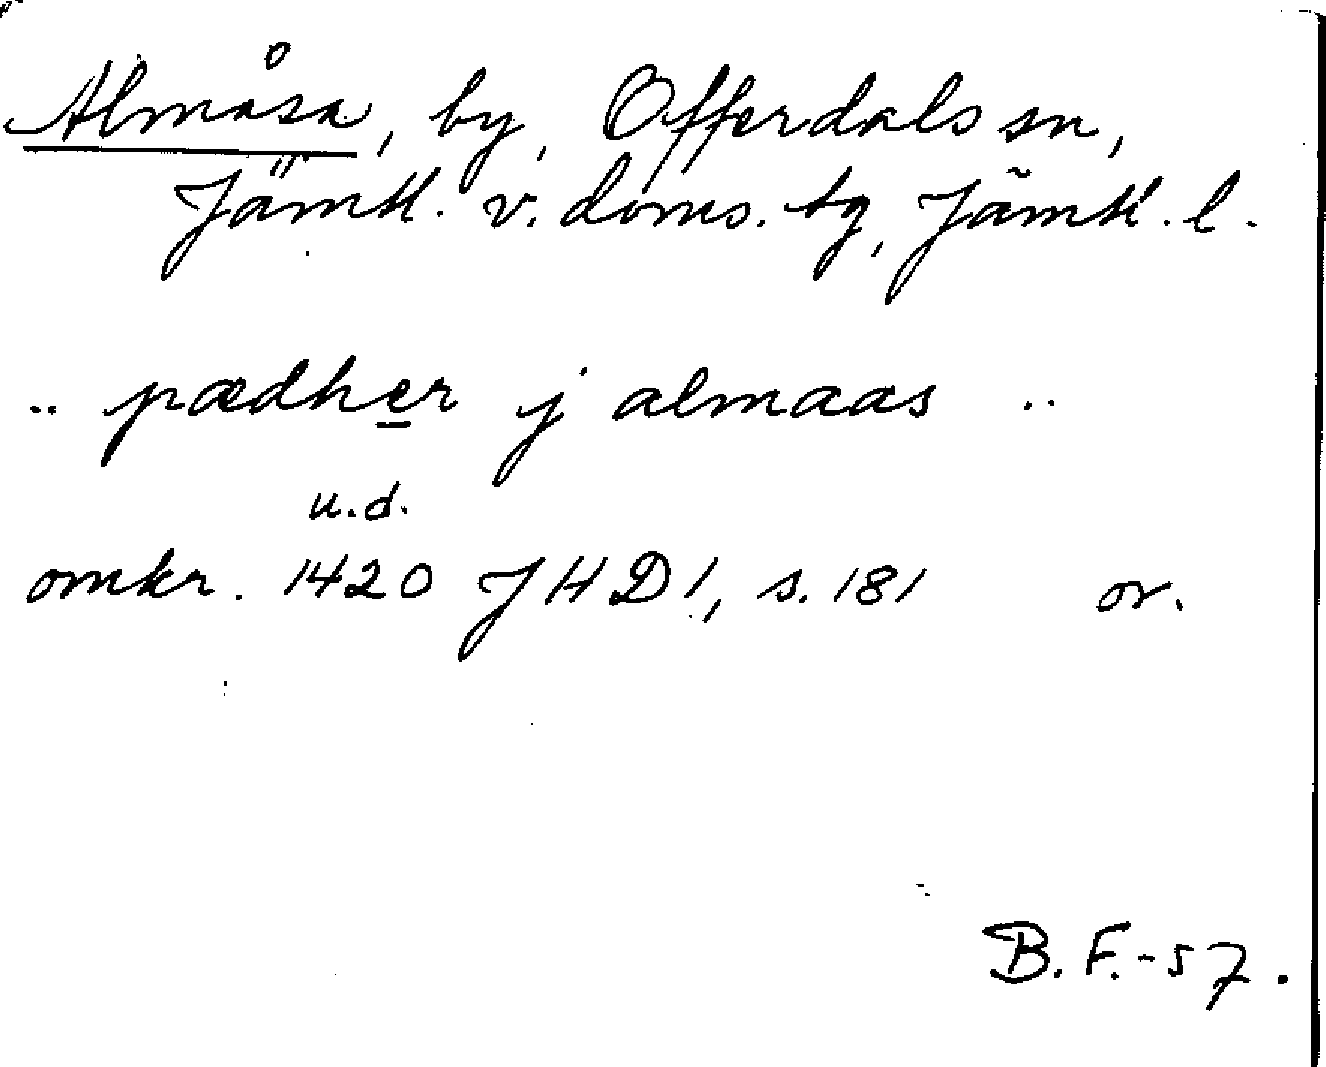 Almåsa, by, Offerdals sn,
Jämtl. v. doms. tg, Jämtl. l.
.. pædher j almaas ..
u.d.
omkr. 1420 JHD 1, s. 181 or.
B. F. - 57.